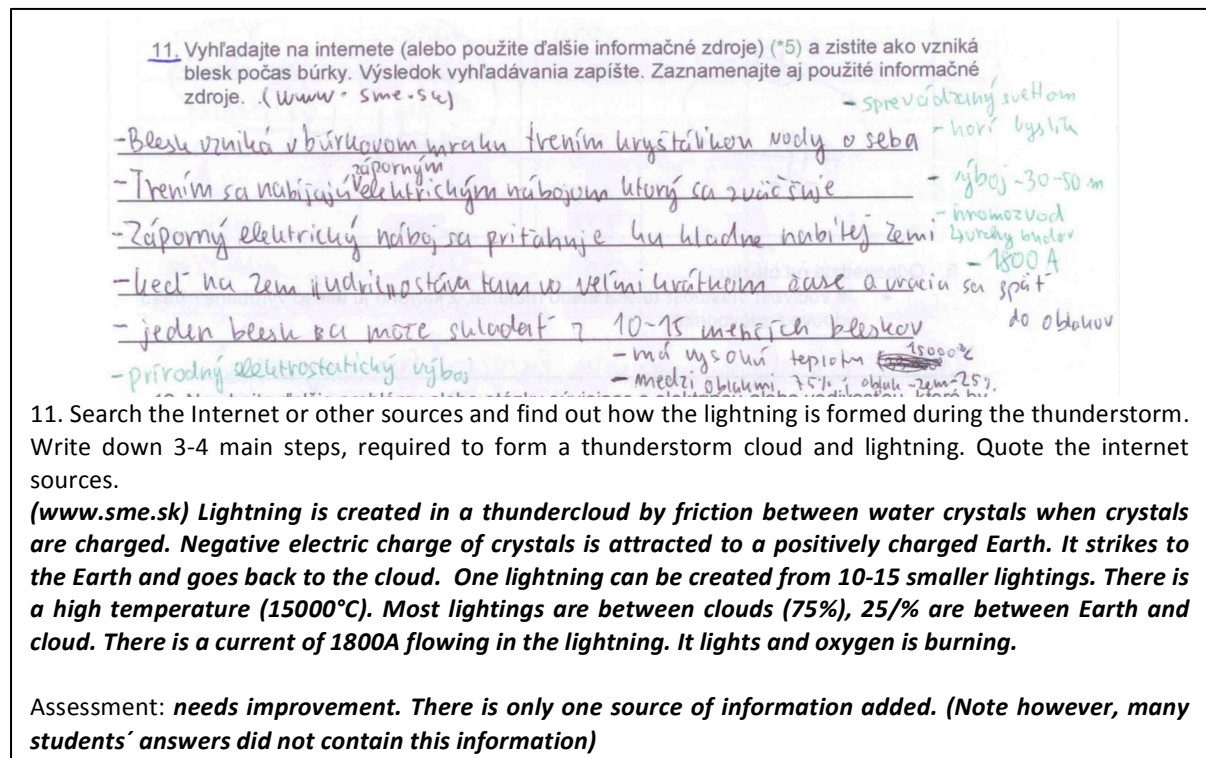 11. Vyhľadajte na internete (alebo použite ďalšie informačné zdroje) (*5) a zistite ako vzniká
blesk počas búrky. Výsledok vyhľadávania zapíšte. Zaznamenajte aj použité informačné
zdroje. (www.sme.sk)
- sprevádzaný svetlom
- Blesk vzniká v búrkovom mraku trením kryštálikov vody o seba
- horí kyslík
záporným
- Trením sa nabíjajú elektrickým nábojom ktorý sa zväčšuje
- výboj - 30-50 m
- Záporný elektrický náboj sa priťahuje ku kladne nabitej zemi
- hromozvod
- 1800 A
- keď na Zem udrí tam vo veľmi krátkom čase a vracia sa späť
do oblakov
- jeden blesk sa môže skladať z 10-15 menších bleskov
- má vysokú teplotu 15000°C
- prírodný elektrostatický výboj
- medzi oblakmi 75%, oblak - zem - 25%
11. Search the Internet or other sources and find out how the lightning is formed during the thunderstorm.
Write down 3-4 main steps, required to form a thunderstorm cloud and lightning. Quote the internet
sources.
(www.sme.sk) Lightning is created in a thundercloud by friction between water crystals when crystals
are charged. Negative electric charge of crystals is attracted to a positively charged Earth. It strikes to
the Earth and goes back to the cloud. One lightning can be created from 10-15 smaller lightings. There is
a high temperature (15000°C). Most lightings are between clouds (75%), 25/% are between Earth and
cloud. There is a current of 1800A flowing in the lightning. It lights and oxygen is burning.
Assessment: needs improvement. There is only one source of information added. (Note however, many
students´ answers did not contain this information)